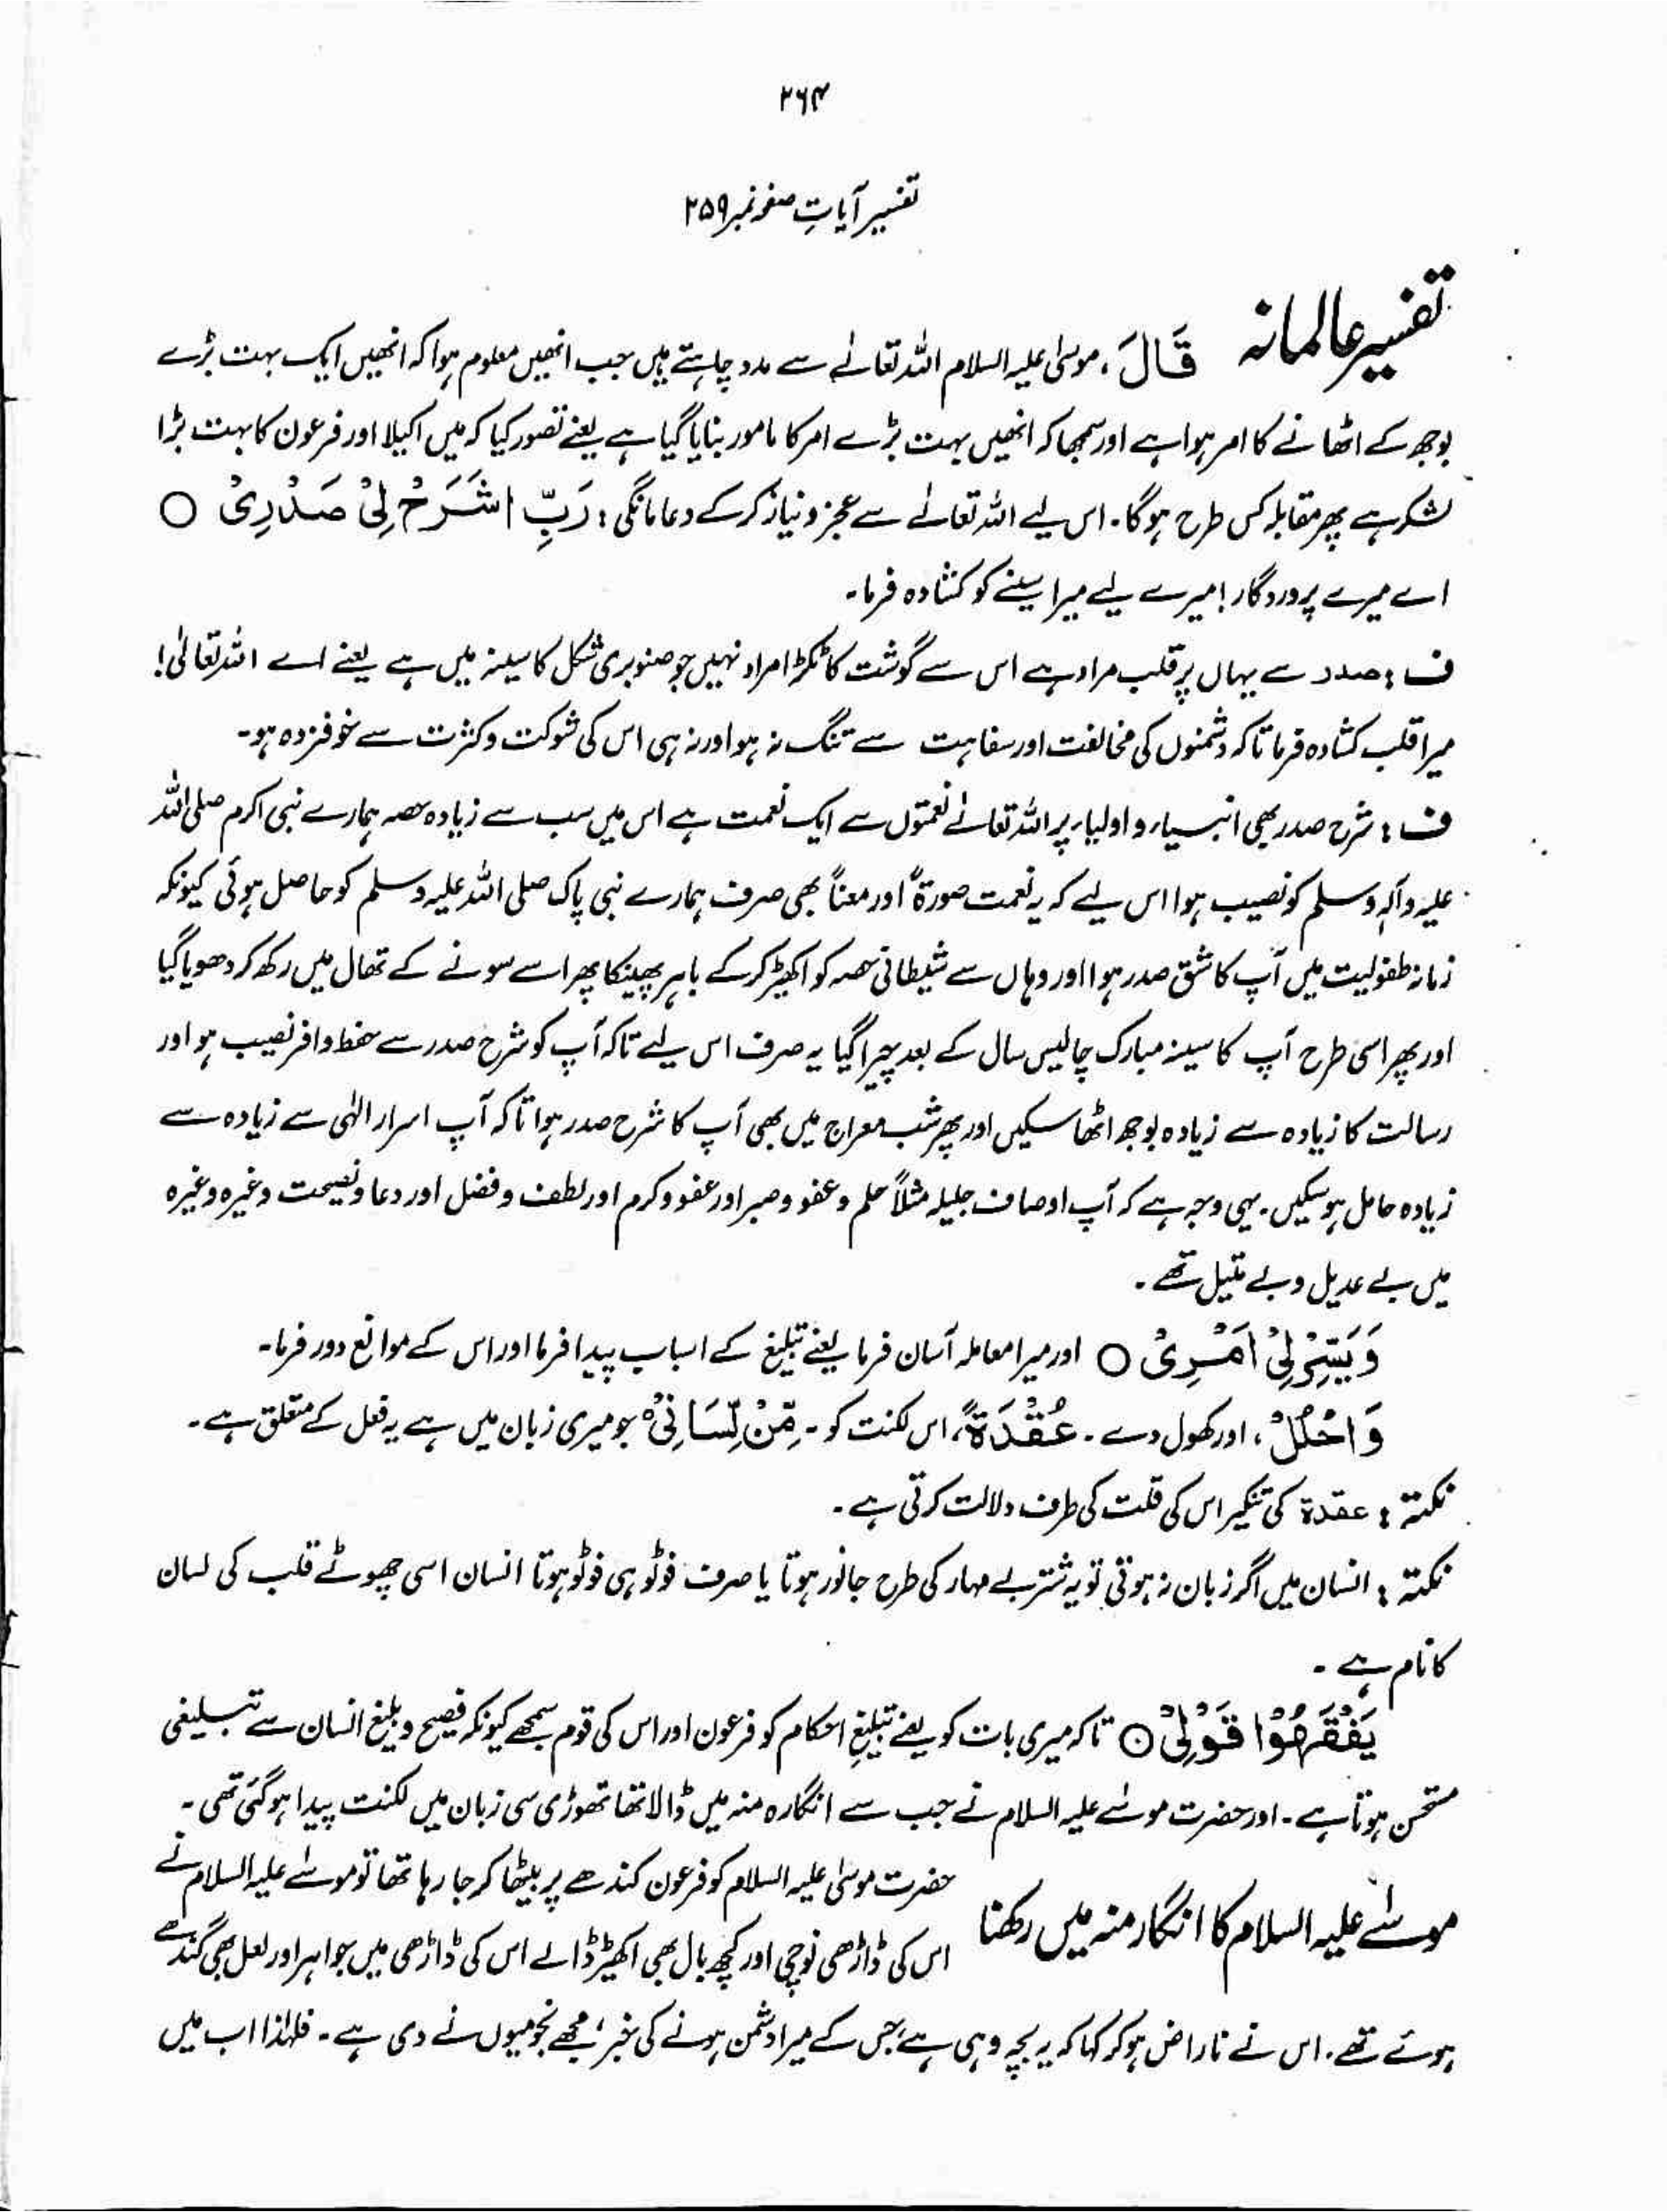 ۲۶۴
تفسیر آیاتِ صفحہ نمبر ۲۵۹
تفسیر عالمانہ قَالَ، موسیٰ علیہ السلام اللہ تعالےٰ سے مدد چاہتے ہیں جب انھیں معلوم ہوا کہ انھیں ایک بہت بڑے
بوجھ کے اٹھانے کا امر ہوا ہے اور سمجھا کہ انھیں بہت بڑے امر کا مامور بنایا گیا ہے یعنے تصور کیا کہ میں اکیلا اور فرعون کا بہت بڑا
لشکر ہے پھر مقابلہ کس طرح ہوگا۔ اس لیے اللہ تعالےٰ سے عجز و نیاز کر کے دعا مانگی : رَبِّ اشَرَحْ لِیْ صَدْرِیْ ○
اے میرے پروردگار! میرے لیے میرا سینے کو کشادہ فرما۔
ف : صدر سے یہاں پر قلب مراد ہے اس سے گوشت کا ٹکڑا مراد نہیں جو صنوبری شکل کا سینہ میں ہے یعنے اے اللہ تعالیٰ!
میرا قلب کشادہ فرما تاکہ دشمنوں کی مخالفت اور سفاہت سے تنگ نہ ہو اور نہ ہی اس کی شوکت و کثرت سے خوفزدہ ہو۔
ف : شرح صدر بھی انبیاء و اولیاء پر اللہ تعالےٰ نعمتوں سے ایک نعمت ہے اس میں سب سے زیادہ حصہ ہمارے نبی اکرم صلی اللہ
علیہ وآلہ وسلم کو نصیب ہوا اس لیے کہ یہ نعمت صورۃً اور معناً بھی صرف ہمارے نبی پاک صلی اللہ علیہ وسلم کو حاصل ہوئی کیونکہ
زمانہ طفولیت میں آپ کا شق صدر ہوا اور وہاں سے شیطانی حصہ کو اکھیڑ کر کے باہر پھینکا پھر اسے سونے کے تھال میں رکھ کر دھویا گیا
اور پھر اسی طرح آپ کا سینہ مبارک چالیس سال کے بعد چیرا گیا یہ صرف اس لیے تاکہ آپ کو شرح صدر سے حظ وافر نصیب ہو اور
رسالت کا زیادہ سے زیادہ بوجھ اٹھا سکیں اور پھر شب معراج میں بھی آپ کا شرح صدر ہوا تاکہ آپ اسرار الٰہی سے زیادہ سے
زیادہ حامل ہوسکیں۔ یہی وجہ ہے کہ آپ اوصاف جلیلہ مثلاً حلم و عفو و صبر اور عفو و کرم اور لطف و فضل اور دعا و نصیحت وغیرہ وغیرہ
میں بے عدیل و بے مثیل تھے۔
وَیَسِّرْ لِیْ اَمْرِیْ ○ اور میرا معاملہ آسان فرما یعنے تبلیغ کے اسباب پیدا فرما اور اس کے موانع دور فرما۔
وَاحْلُلْ، اور کھول دے۔ عُقْدَۃً، اس لکنت کو۔ مِّنْ لِّسَانِیْ جو میری زبان میں ہے یہ فعل کے متعلق ہے۔
نکتہ : عقدۃ کی تنکیر اس کی قلت کی طرف دلالت کرتی ہے۔
نکتہ : انسان میں اگر زبان نہ ہوتی تو یہ شتر بے مہار کی طرح جانور ہوتا یا صرف فوٹو ہی فوٹو ہوتا انسان اسی چھوٹے قلب کی لسان
کا نام ہے۔
یَفْقَہُوْا قَوْلِیْ ○ تاکہ میری بات کو یعنے تبلیغِ احکام کو فرعون اور اس کی قوم سمجھے کیونکہ فصیح و بلیغ انسان سے تبلیغی
مستحسن ہوتا ہے۔ اور حضرت موسےٰ علیہ السلام نے جب سے انگارہ منہ میں ڈالا تھا تھوڑی سی زبان میں لکنت پیدا ہوگئی تھی۔
موسےٰ علیہ السلام کا انگار منہ میں رکھنا حضرت موسیٰ علیہ السلام کو فرعون کندھے پر بیٹھا کر جا رہا تھا تو موسےٰ علیہ السلام نے
اس کی ڈاڑھی نوچی اور کچھ بال بھی اکھیڑ ڈالے اس کی ڈاڑھی میں جواہر اور لعل بھی گندھے
ہوئے تھے۔ اس نے ناراض ہوکر کہا کہ یہ بچہ وہی ہے جس کے میرا دشمن ہونے کی خبر، مجھے نجومیوں نے دی ہے۔ فلہٰذا اب میں